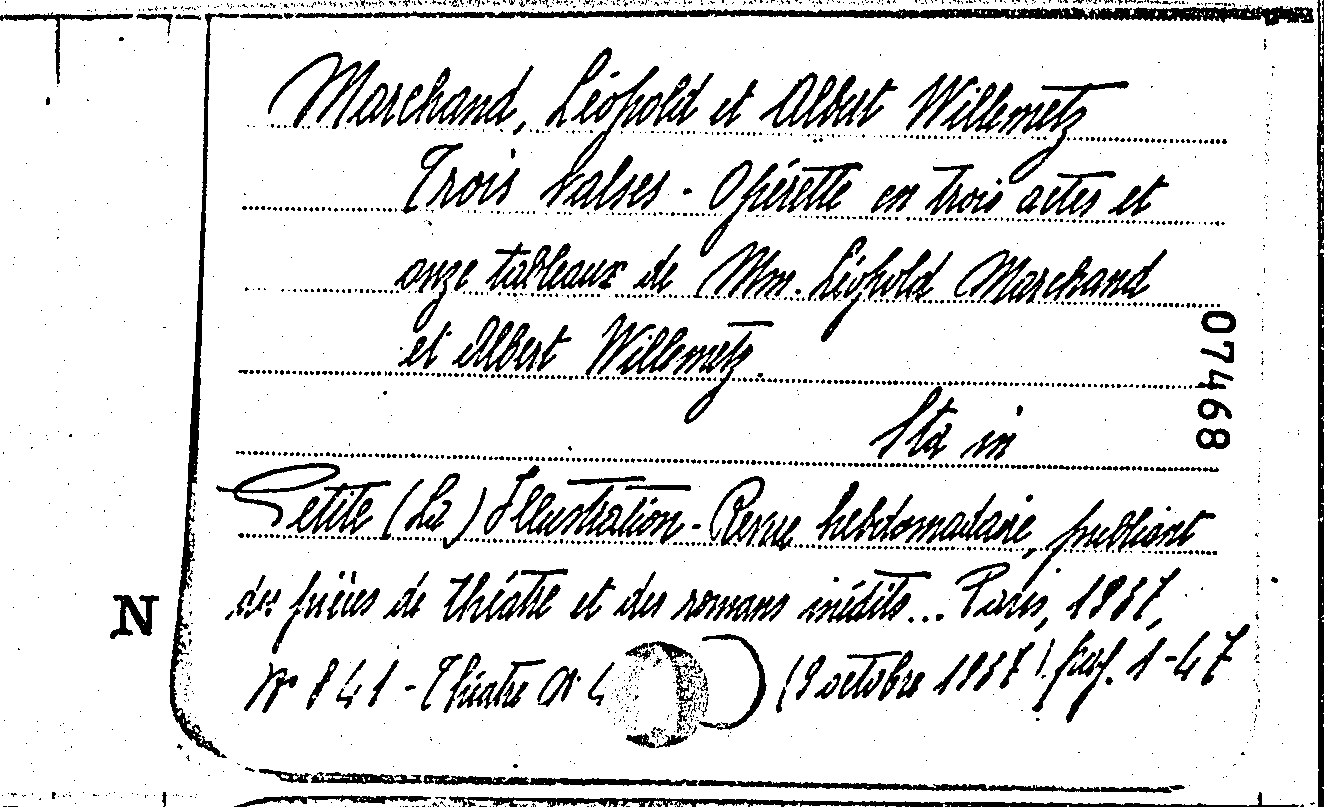 Marchand, Léopold et Albert Willemetz
Trois Valses - Opérette en trois actes et
onze tableaux de Mm. Léopold Marchand
et Albert Willemetz.
07468
Sta in
Petite (La) Illustration - Revue hebdomadaire, publiant
des pièces de théâtre et des romans inédits... Paris, 1937,
N
Nº 841 - Théâtre Nº 4
(9 octobre 1937) pag. 1-47